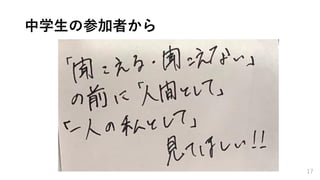 中学生の参加者から
「聞こえる・聞こえない」
の前に「人間として」
「一人の私として」
見てほしい!!
17